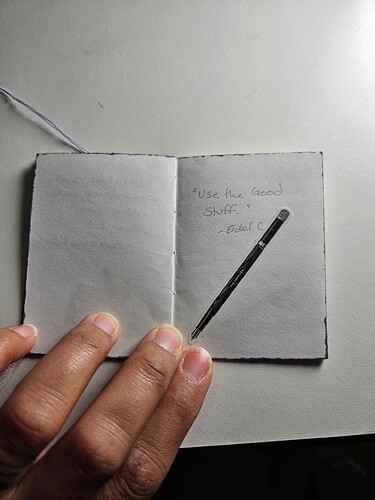 "Use the Good
Stuff."
- Edel C